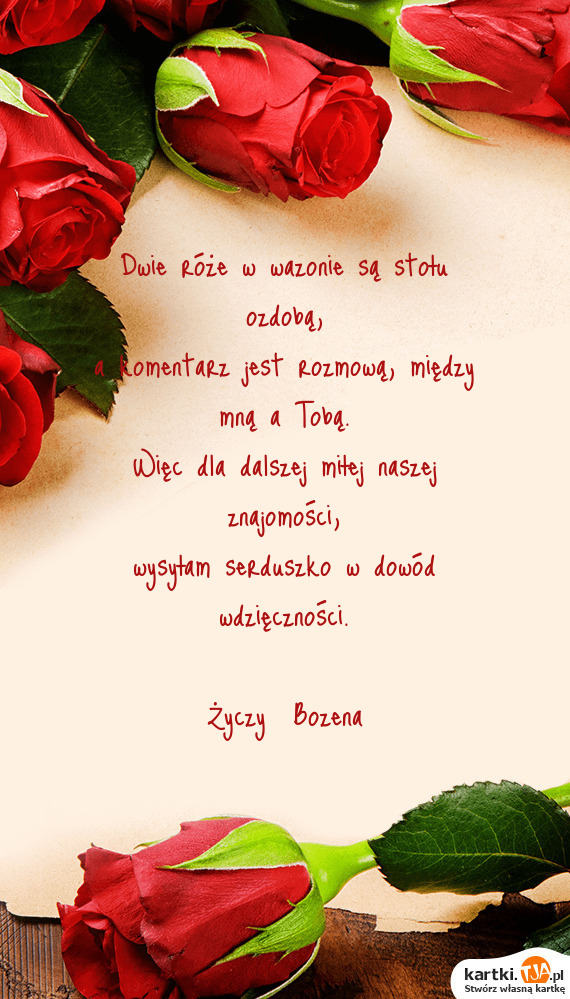 Dwie róże w wazonie są stołu
ozdobą,
a komentarz jest rozmową, między
mną a Tobą.
Więc dla dalszej miłej naszej
znajomości,
wysyłam serduszko w dowód
wdzięczności.
Życzy Bozena
kartki.TJA.pl
Stwórz własną kartkę